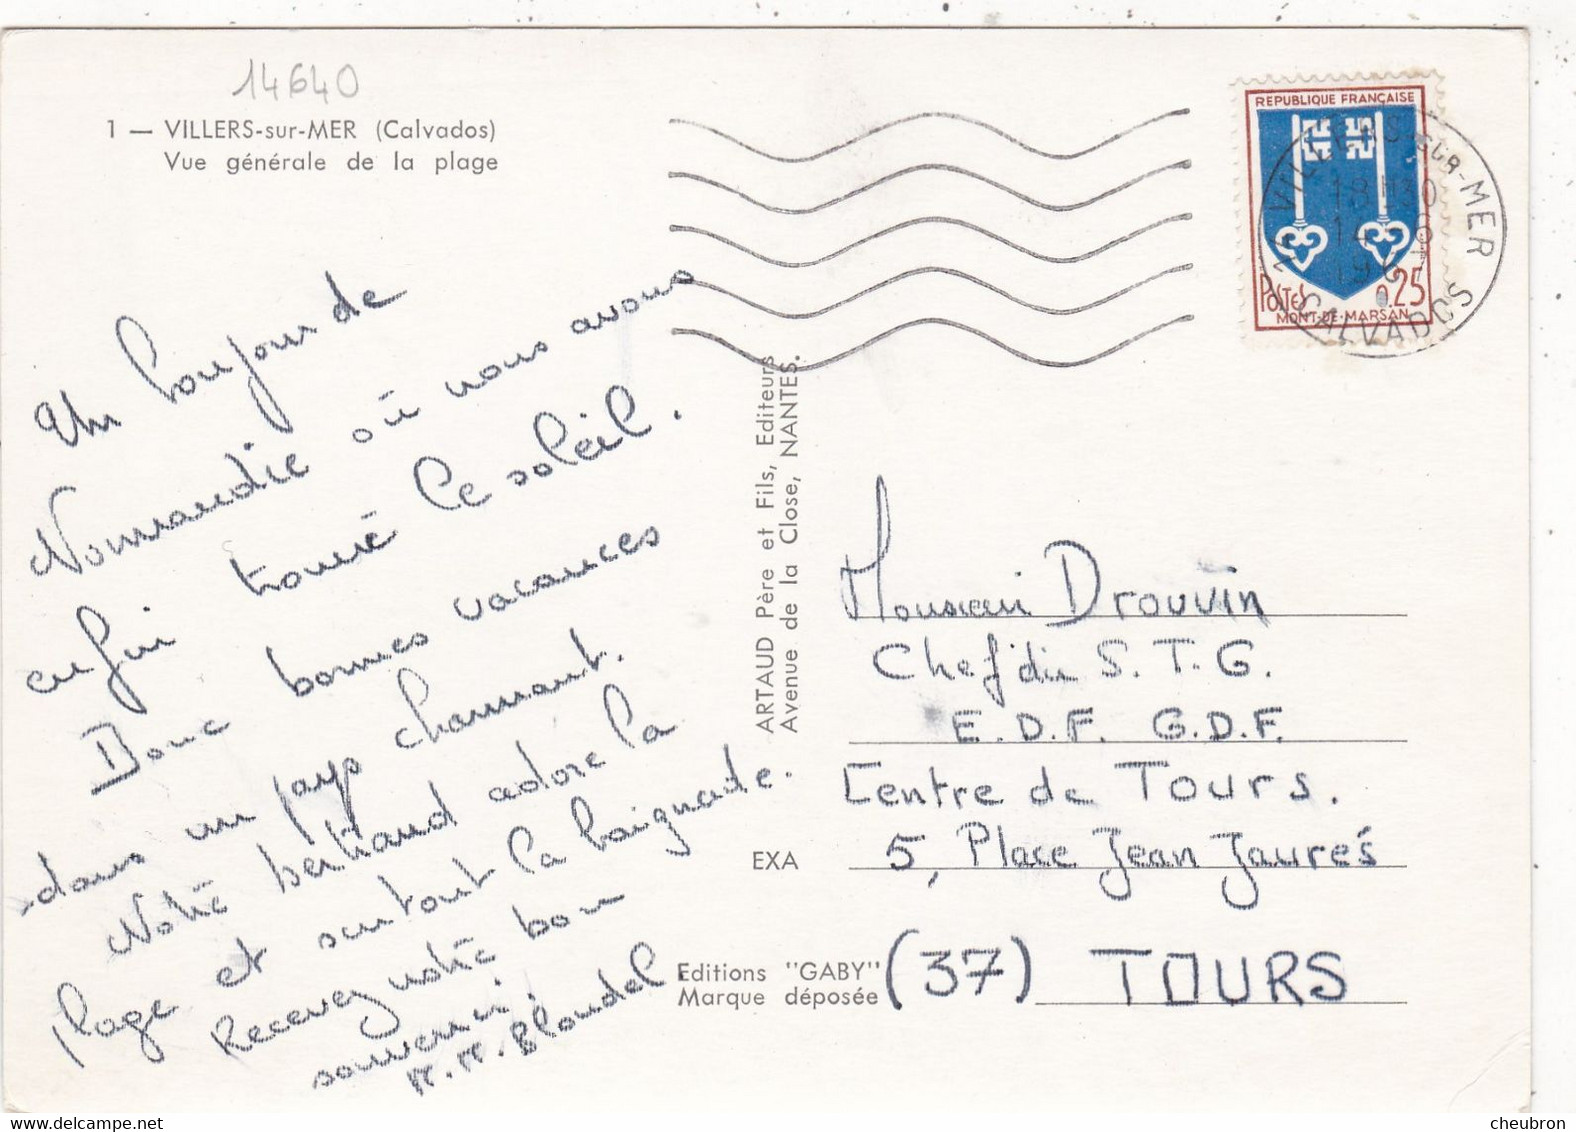 14640
1 — VILLERS-sur-MER (Calvados)
Vue générale de la plage
REPUBLIQUE FRANÇAISE
POSTES 0.25
MONT-DE-MARSAN
14 VILLERS-SUR-MER
18H30
14
CALVADOS
Un bonjour de
Normandie où nous avons
enfin trouvé le soleil.
Donc bonnes vacances
dans un pays charmant.
Notre bertrand adore la
plage et surtout la baignade.
Recevez notre bon
souvenir.
M.M. Blondel
ARTAUD Père et Fils, Editeurs
Avenue de la Close, NANTES.
EXA
Editions "GABY"
Marque déposée
Monsieur Drouvin
Chef du S.T.G.
E.D.F. G.D.F.
Centre de Tours.
5, Place Jean Jaurés
(37) TOURS
cheubron